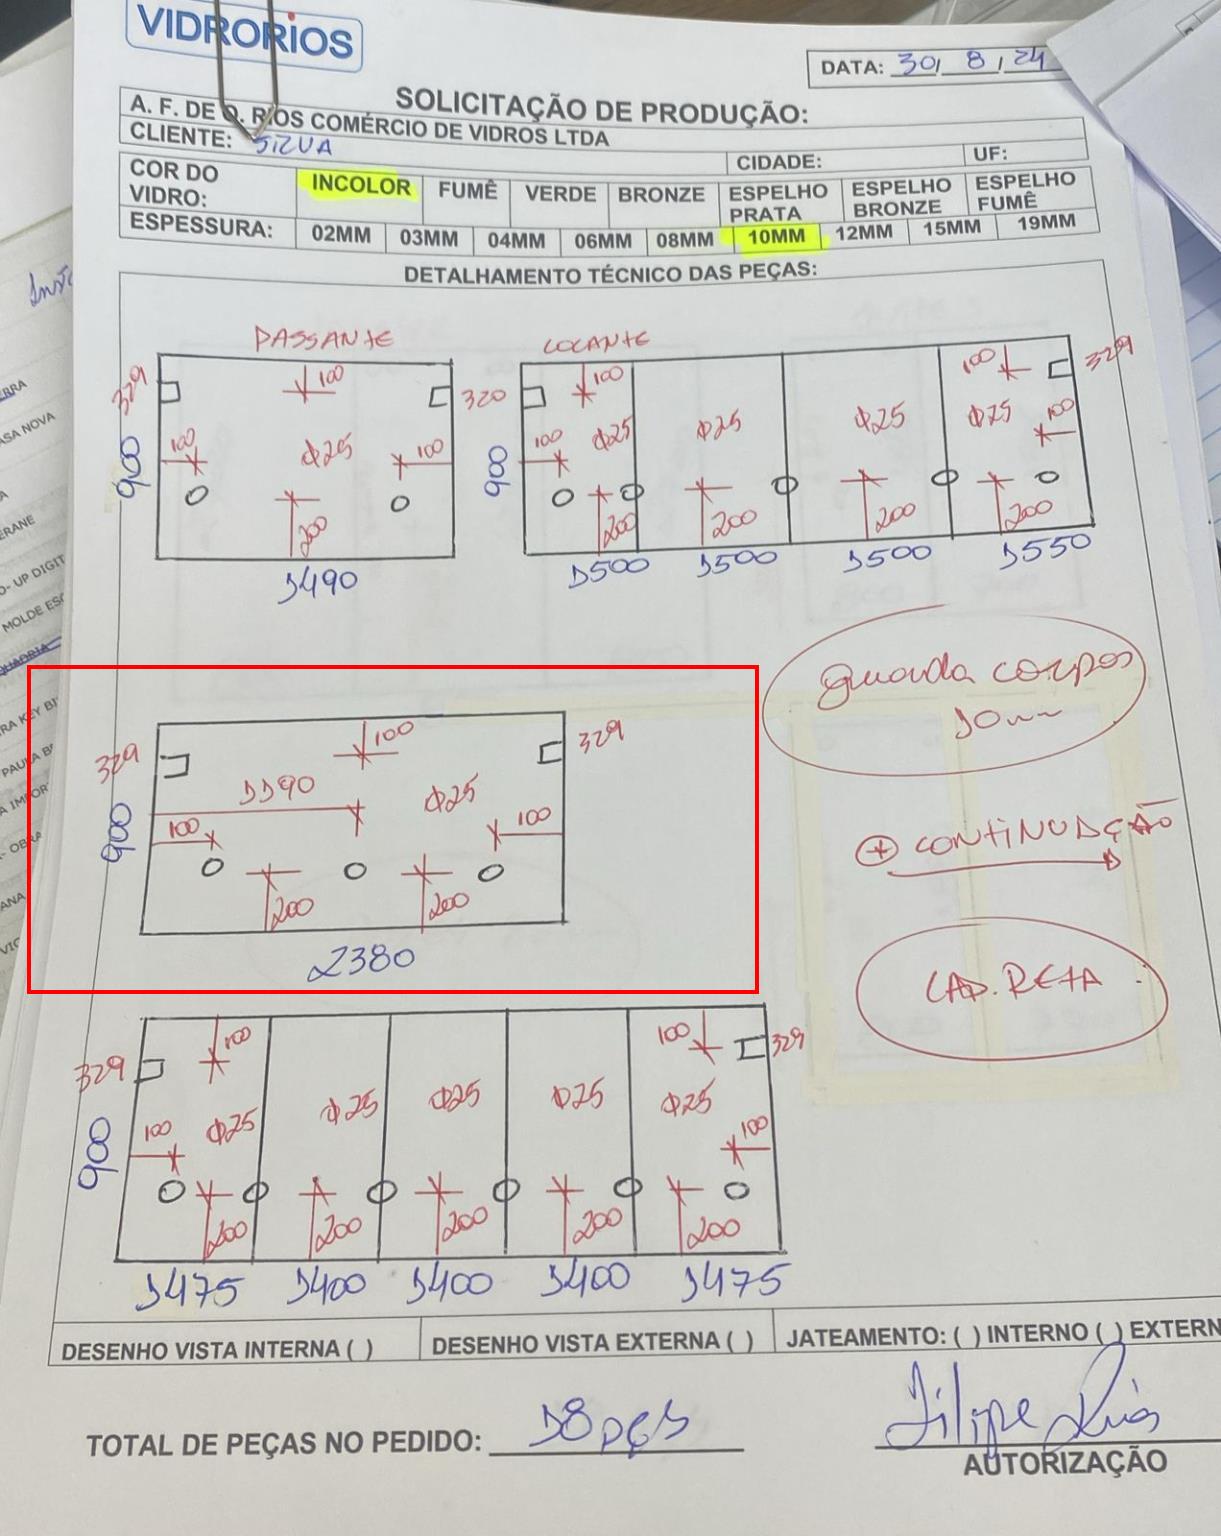 VIDRORIOS
DATA: 30/ 8 / 24
SOLICITAÇÃO DE PRODUÇÃO:
A. F. DE O. RIOS COMÉRCIO DE VIDROS LTDA
CLIENTE: SILVA CIDADE: UF:
COR DO VIDRO: INCOLOR FUMÊ VERDE BRONZE ESPELHO PRATA ESPELHO BRONZE ESPELHO FUMÊ
ESPESSURA: 02MM 03MM 04MM 06MM 08MM 10MM 12MM 15MM 19MM
DETALHAMENTO TÉCNICO DAS PEÇAS:
PASSANTE
329 100 320
100 Φ25 100
900
200
1490
COLANTE
100 100 329
100 Φ25 Φ25 Φ25 Φ25 100
900
200 200 200 200
1500 1500 1500 1550
guarda corpos
10mm
329 100 329
1190 Φ25
100 100
900
200 200
2380
+ CONTINUAÇÃO
LAP. RETA
329 100 100 329
100 Φ25 Φ25 Φ25 Φ25 Φ25 100
900
200 200 200 200 200
1475 1400 1400 1400 1475
DESENHO VISTA INTERNA ( ) DESENHO VISTA EXTERNA ( ) JATEAMENTO: ( ) INTERNO ( ) EXTERN
TOTAL DE PEÇAS NO PEDIDO: 18 pçs
Filipe Rios
AUTORIZAÇÃO
ERRA
ASA NOVA
ERANE
O- UP DIGIT
MOLDE ESC
QUADRIA
RA KEY BI
PAULA B
A IMPOR
- OBRA
ANA
VIC